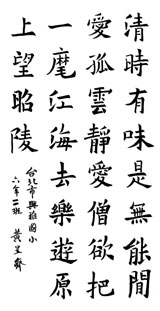 清時有味是無能閒
愛孤雲靜愛僧欲把
一麾江海去樂遊原
上望昭陵
台北市興雅國小
六年二班 黃